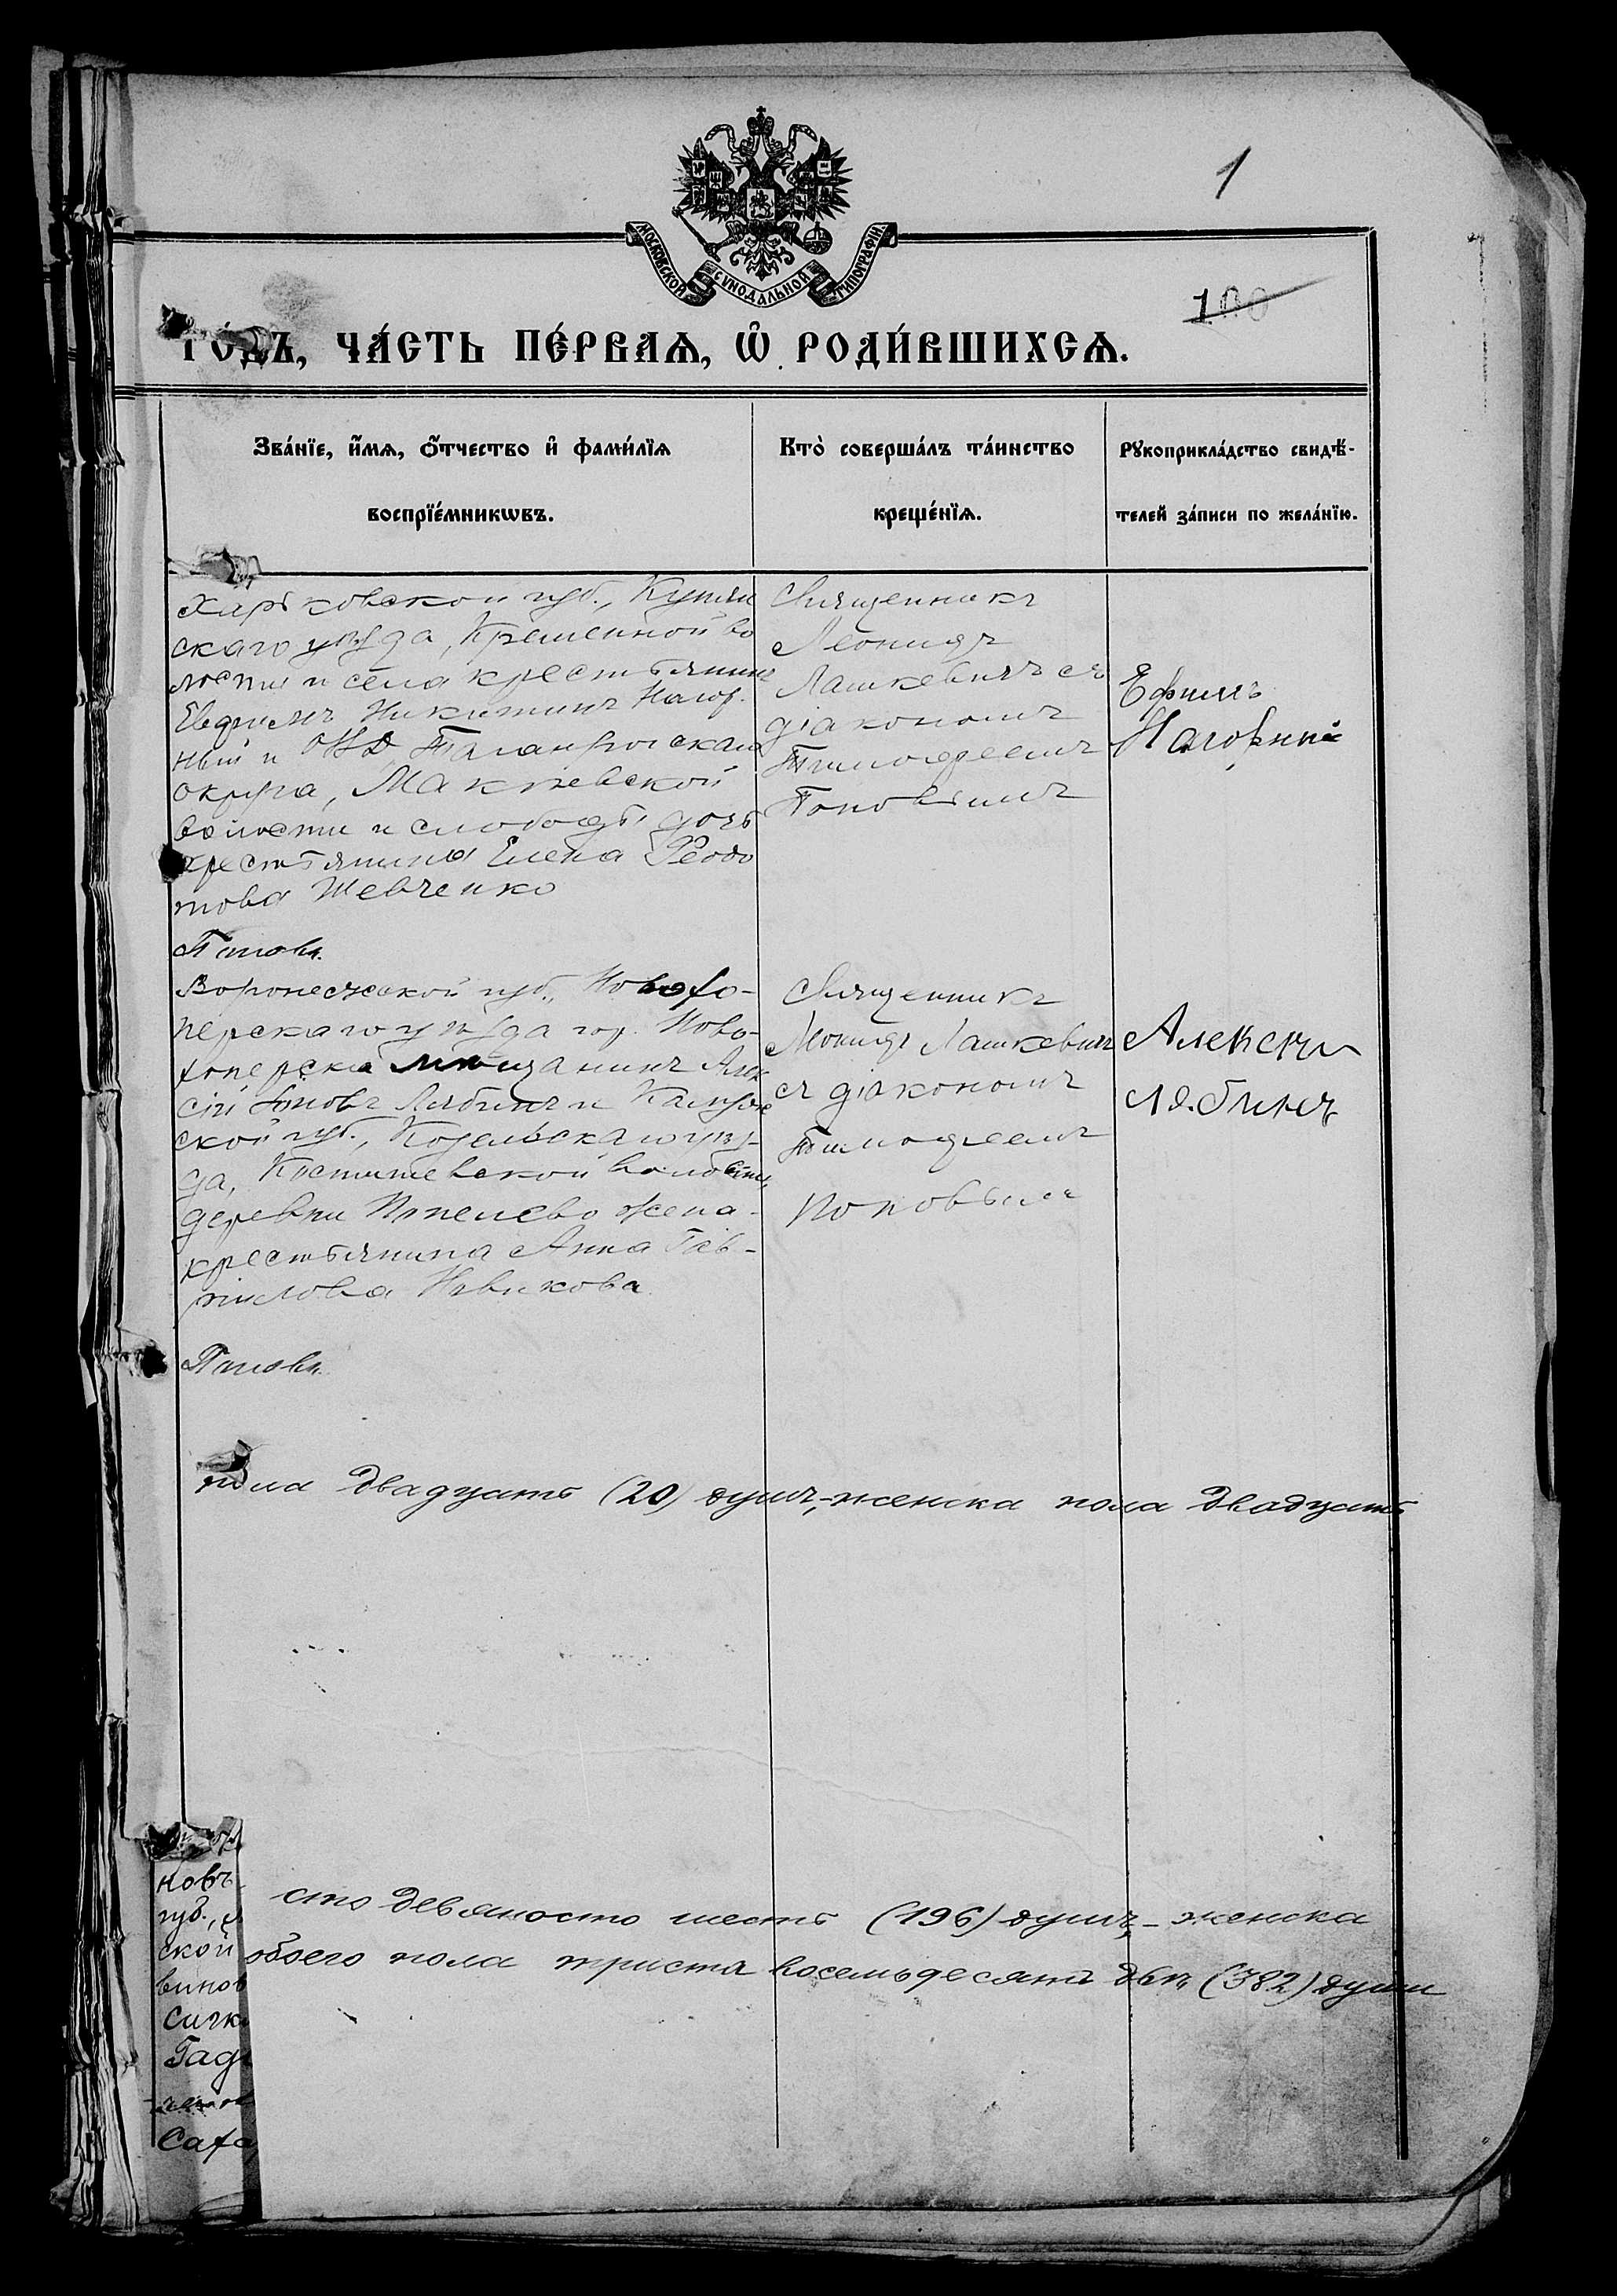 1
МОСКОВСКОЙ СѴНОДАЛЬНОЙ ТИПОГРАФІИ
100
ГО́ДЪ, ЧА́СТЬ ПЕ́РВАѦ, Ѡ҆ РОДИ́ВШИХСѦ.
Зва́нїе, и҆́мѧ, ѻ҆́тчество и҆ фами́лїѧ
воспрїе́мникѡвъ.
Кто̀ соверша́лъ та́инство
креще́нїѧ.
Рꙋкоприкла́дство свидѣ́-
телей за́писи по жела́нїю.
Харьковской губ., Купян
скаго уѣзда, Кременной во
лости и села крестьянинъ
Евфимъ Никитинъ Нагор-
ный и ОВД, Таганрогскаго
округа, Макѣевской
волости и слободы дочь
крестьянина Елена Феодо
това Шевченко
Священникъ
Леонидъ
Лашкевичъ съ
діакономъ
Тимофеемъ
Поповымъ
Ефимъ
Нагорный
Воронежской губ., Новохо-
перскаго уѣзда гор. Ново-
хоперска мѣщанинъ Алек
сій Лябинъ и Калуж
ской губ., Козельскаго уѣз-
да, волости,
деревни Попелево жена
крестьянина Анна Гав-
риілова Новикова
Священникъ
Леонидъ Лашкевичъ
съ діакономъ
Тимофеемъ
Поповымъ
Алексей
Лябинъ
пола двадцать (20) душъ,-женска пола двадцать
сто девяносто шесть (196) душъ,- женска
обоего пола триста восемьдесятъ двѣ (382) души
новъ
губ.,
ской
винов
Сичк
Гад
Саха